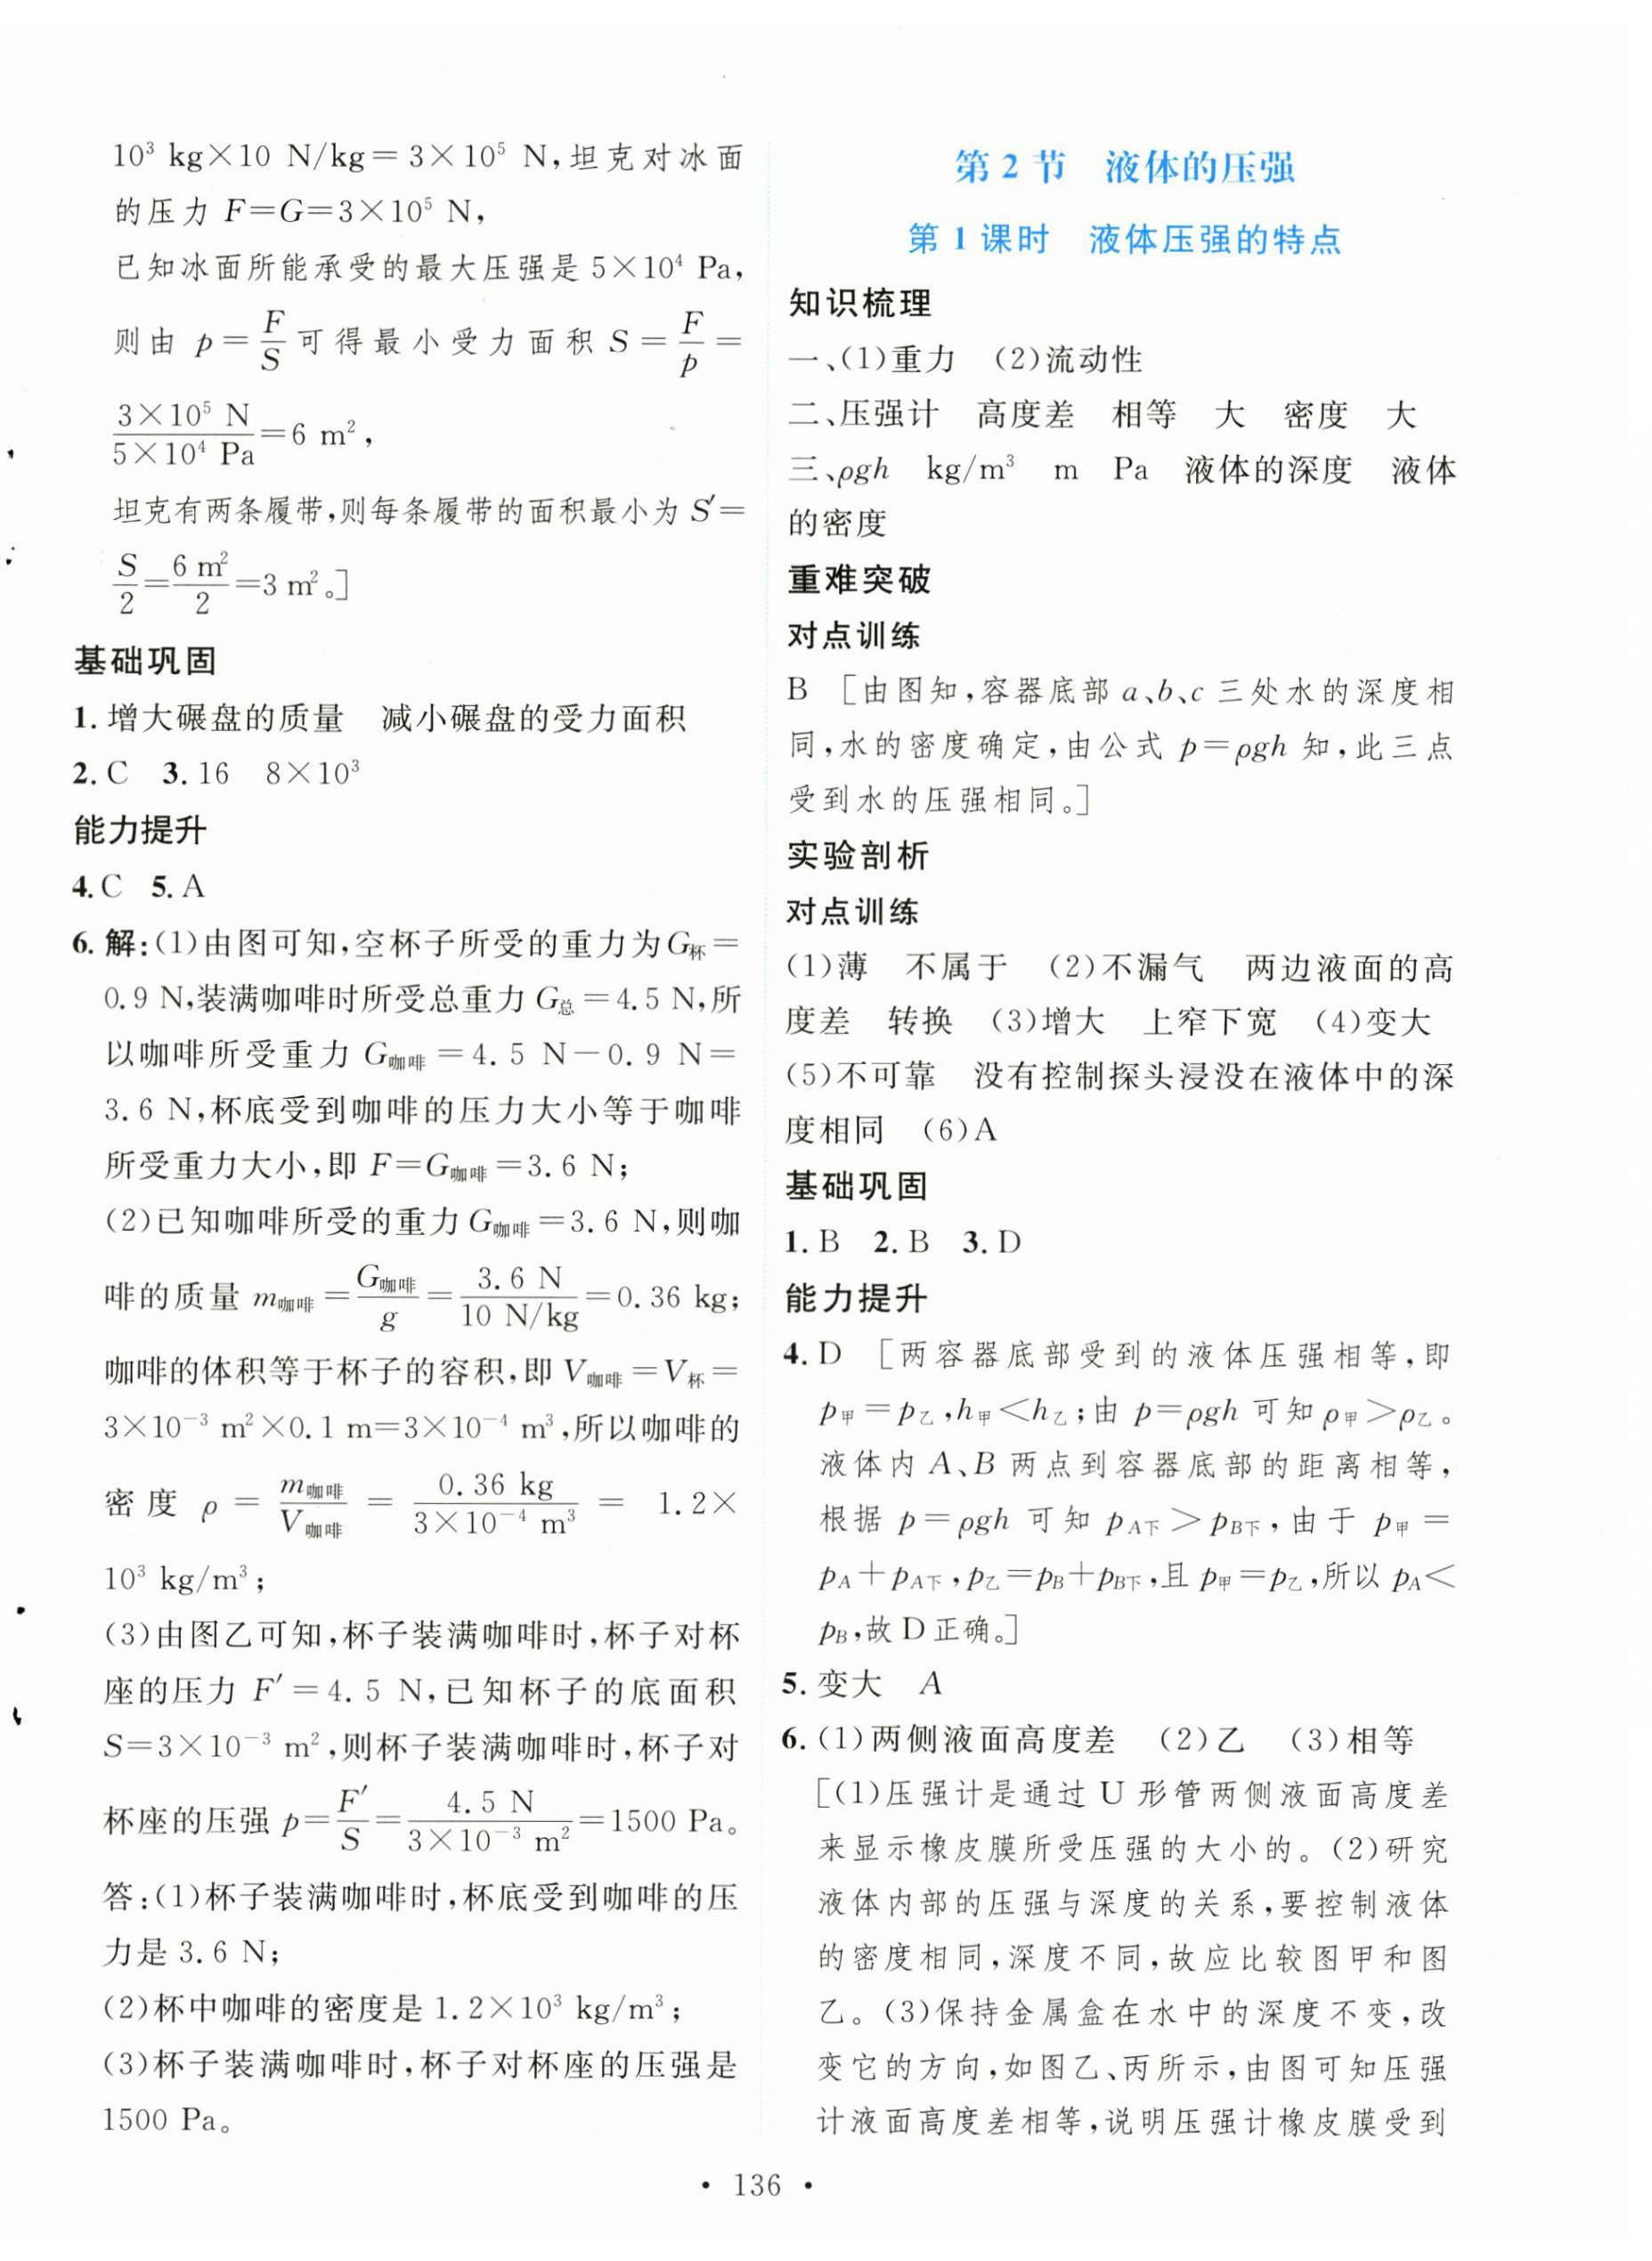 10³ kg×10 N/kg=3×10⁵ N,坦克对冰面
的压力 F=G=3×10⁵ N,
已知冰面所能承受的最大压强是 5×10⁴ Pa,
则由 p=F/S可得最小受力面积 S=F/p=
3×10⁵ N/5×10⁴ Pa=6 m²,
坦克有两条履带,则每条履带的面积最小为 S′=
S/2=6 m²/2=3 m²。]
基础巩固
1.增大碾盘的质量 减小碾盘的受力面积
2.C 3.16 8×10³
能力提升
4.C 5.A
6.解:(1)由图可知,空杯子所受的重力为G杯=
0.9 N,装满咖啡时所受总重力 G总=4.5 N,所
以咖啡所受重力 G咖啡=4.5 N-0.9 N=
3.6 N,杯底受到咖啡的压力大小等于咖啡
所受重力大小,即 F=G咖啡=3.6 N;
(2)已知咖啡所受的重力G咖啡=3.6 N,则咖
啡的质量 m咖啡=G咖啡/g=3.6 N/10 N/kg=0.36 kg;
咖啡的体积等于杯子的容积,即 V咖啡=V杯=
3×10⁻³ m²×0.1 m=3×10⁻⁴ m³,所以咖啡的
密度 ρ=m咖啡/V咖啡=0.36 kg/3×10⁻⁴ m³=1.2×
10³ kg/m³;
(3)由图乙可知,杯子装满咖啡时,杯子对杯
座的压力 F′=4.5 N,已知杯子的底面积
S=3×10⁻³ m²,则杯子装满咖啡时,杯子对
杯座的压强 p=F′/S=4.5 N/3×10⁻³ m²=1500 Pa。
答:(1)杯子装满咖啡时,杯底受到咖啡的压
力是 3.6 N;
(2)杯中咖啡的密度是 1.2×10³ kg/m³;
(3)杯子装满咖啡时,杯子对杯座的压强是
1500 Pa。
第 2 节 液体的压强
第 1 课时 液体压强的特点
知识梳理
一、(1)重力 (2)流动性
二、压强计 高度差 相等 大 密度 大
三、ρgh kg/m³ m Pa 液体的深度 液体
的密度
重难突破
对点训练
B [由图知,容器底部 a、b、c 三处水的深度相
同,水的密度确定,由公式 p=ρgh 知,此三点
受到水的压强相同。]
实验剖析
对点训练
(1)薄 不属于 (2)不漏气 两边液面的高
度差 转换 (3)增大 上窄下宽 (4)变大
(5)不可靠 没有控制探头浸没在液体中的深
度相同 (6)A
基础巩固
1.B 2.B 3.D
能力提升
4.D [两容器底部受到的液体压强相等,即
p甲=p乙,h甲<h乙;由 p=ρgh 可知 ρ甲>ρ乙。
液体内 A、B 两点到容器底部的距离相等,
根据 p=ρgh 可知 pA下>pB下,由于 p甲=
pA+pA下,p乙=pB+pB下,且 p甲=p乙,所以 pA<
pB,故 D 正确。]
5.变大 A
6.(1)两侧液面高度差 (2)乙 (3)相等
[(1)压强计是通过 U 形管两侧液面高度差
来显示橡皮膜所受压强的大小的。(2)研究
液体内部的压强与深度的关系,要控制液体
的密度相同,深度不同,故应比较图甲和图
乙。(3)保持金属盒在水中的深度不变,改
变它的方向,如图乙、丙所示,由图可知压强
计液面高度差相等,说明压强计橡皮膜受到
• 136 •